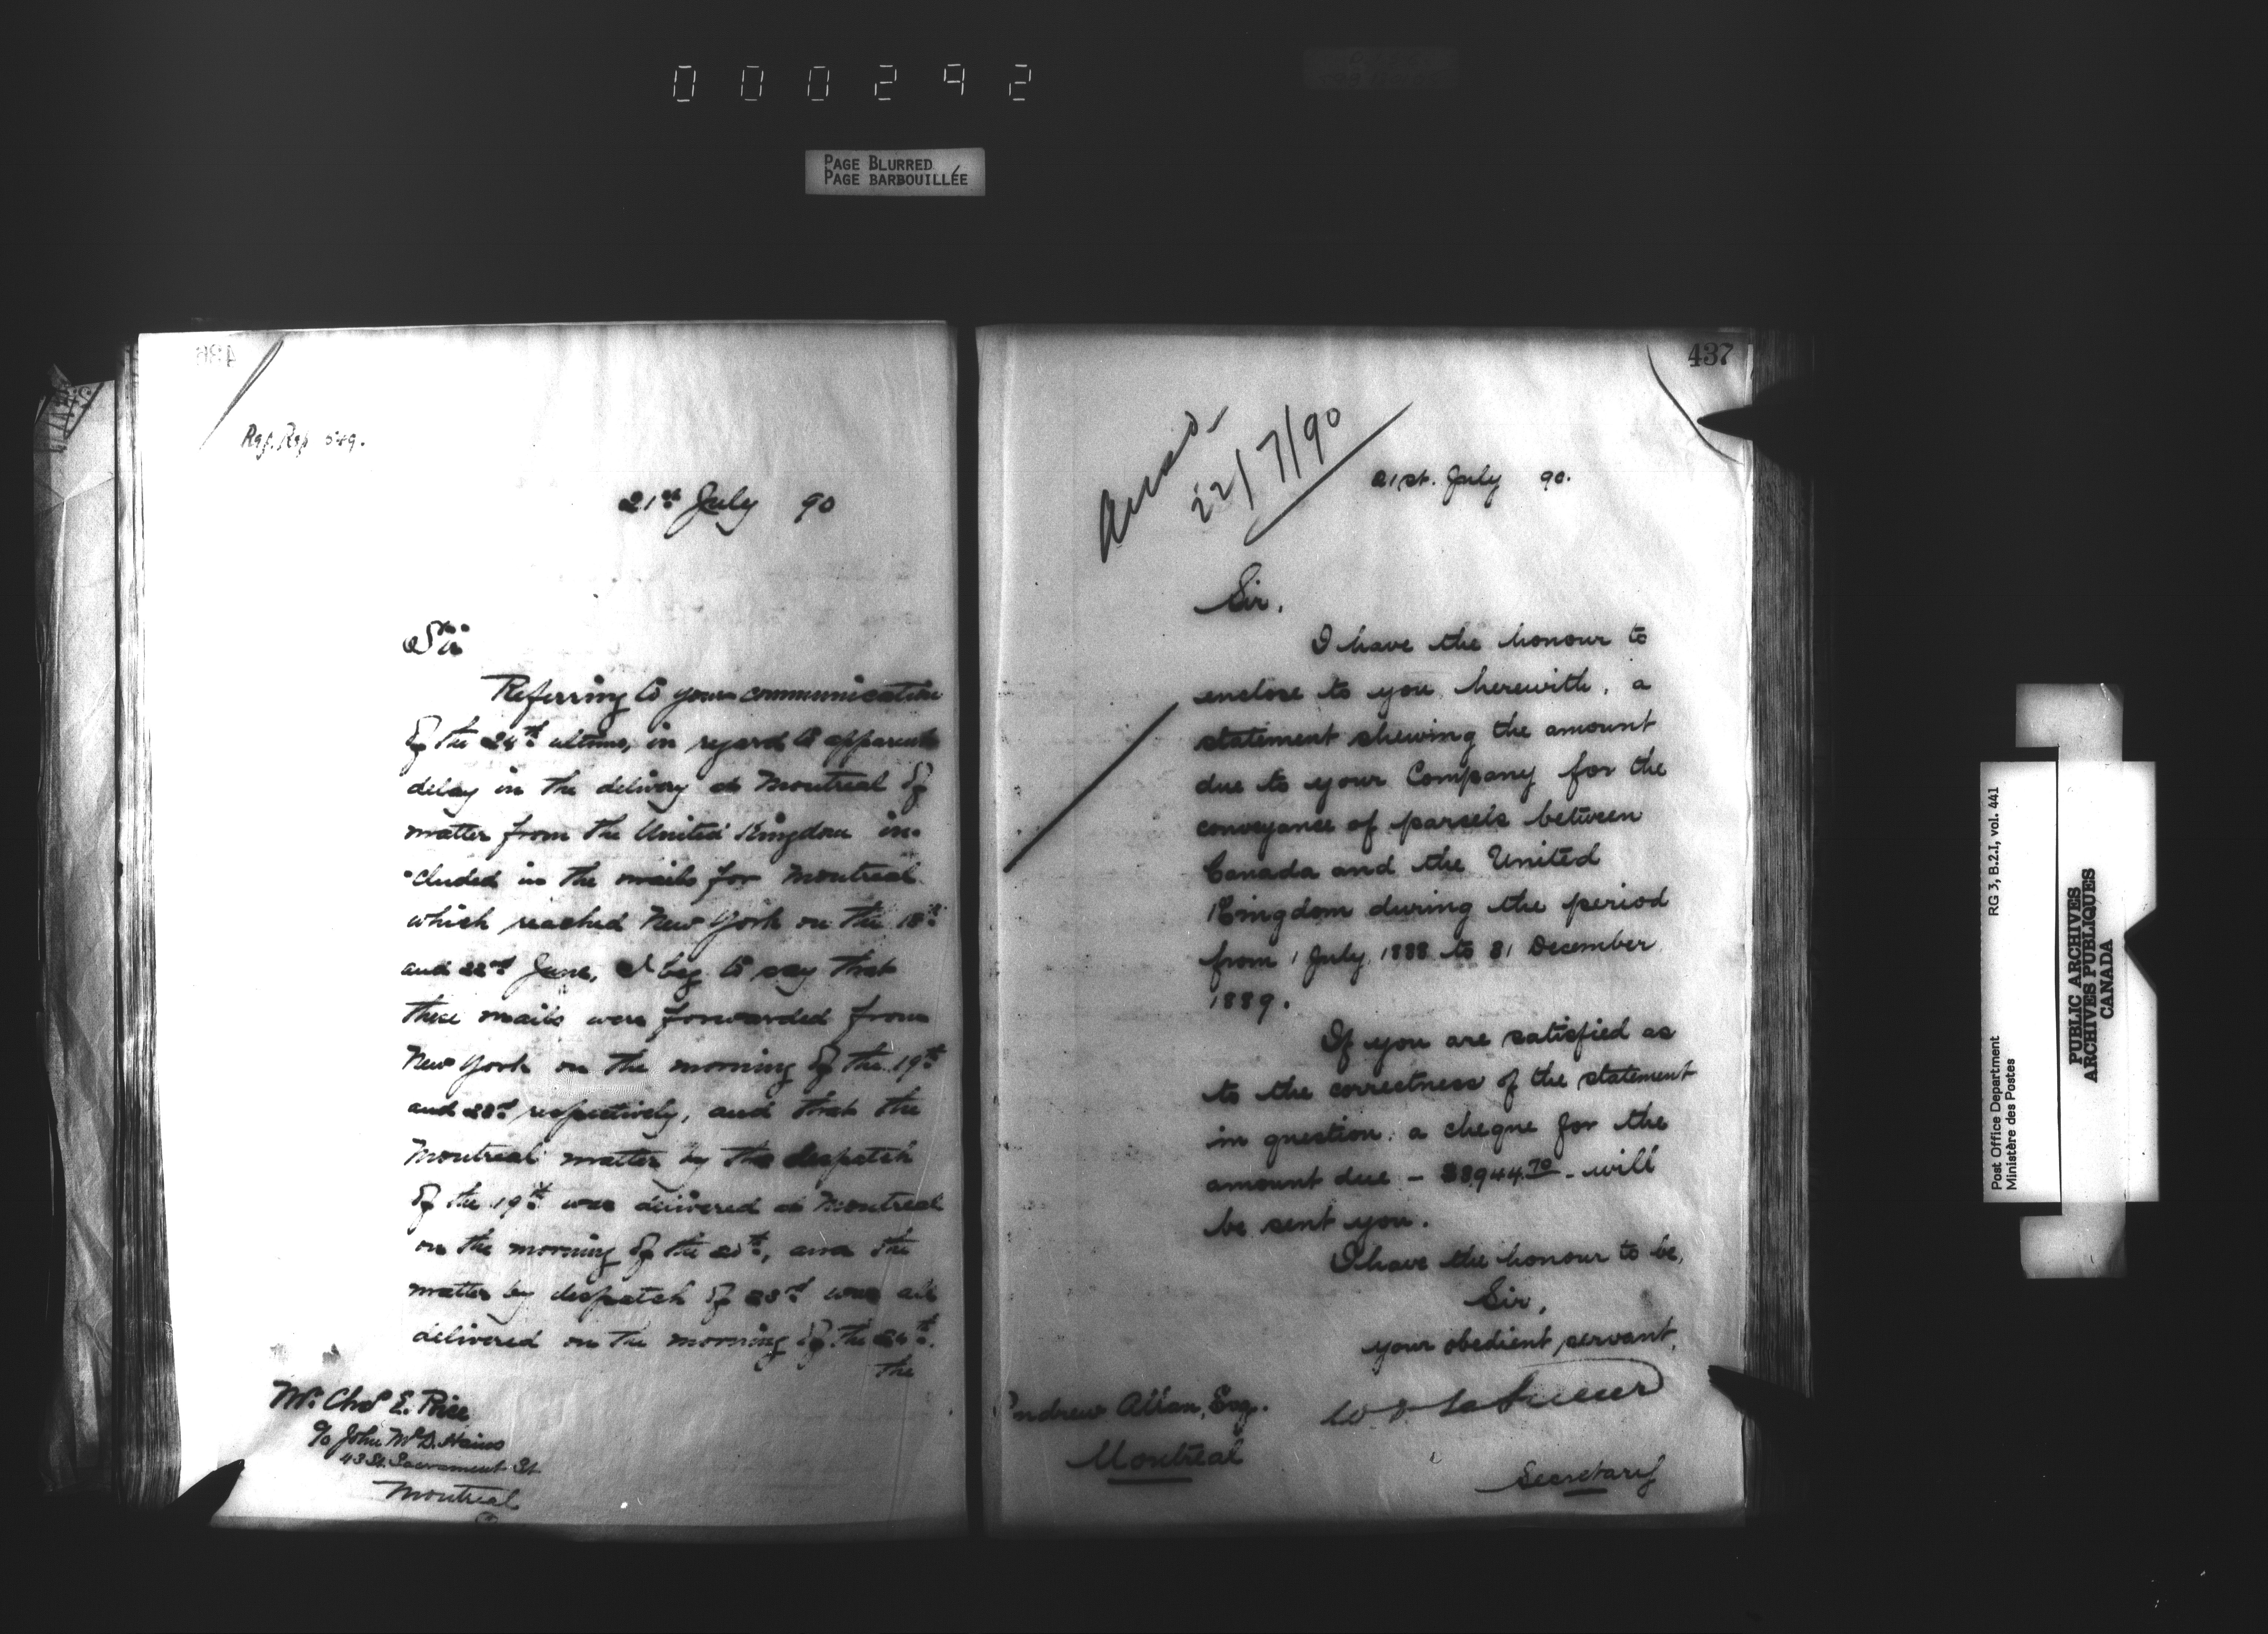 000292
PAGE BLURRED
PAGE BARBOUILLÉE
436
21st July 90
Sir
Referring to your communication
of the 24th ultimo, in regard to apparent
delay in the delivery at Montreal of
matter from the United Kingdom in-
cluded in the mails for Montreal
which reached New York on the 18th
and 22nd June, I beg to say that
these mails were forwarded from
New York on the morning of the 19th
and 23rd respectively, and that the
Montreal matter by the despatch
of the 19th was delivered at Montreal
on the morning of the 20th, and the
matter by despatch of 23rd was all
delivered on the morning of the 24th.
the
Mr. Chas E. Price
c/o John McD. Hains
43 St. Sacrament St
Montreal
437
22/7/90
21st. July 90.
Sir,
I have the honour to
enclose to you, herewith, a
statement shewing the amount
due to your Company for the
conveyance of parcels between
Canada and the United
Kingdom during the period
from 1 July, 1888 to 31 December
1889.
If you are satisfied as
to the correctness of the statement
in question, a cheque for the
amount due - $8944.70 - will
be sent you.
I have the honour to be,
Sir,
your obedient servant,
W D LeSueur
Secretary
Andrew Allan, Esq.
Montreal
RG 3, B.2.I, vol. 441
Post Office Department
Ministère des Postes
PUBLIC ARCHIVES
ARCHIVES PUBLIQUES
CANADA